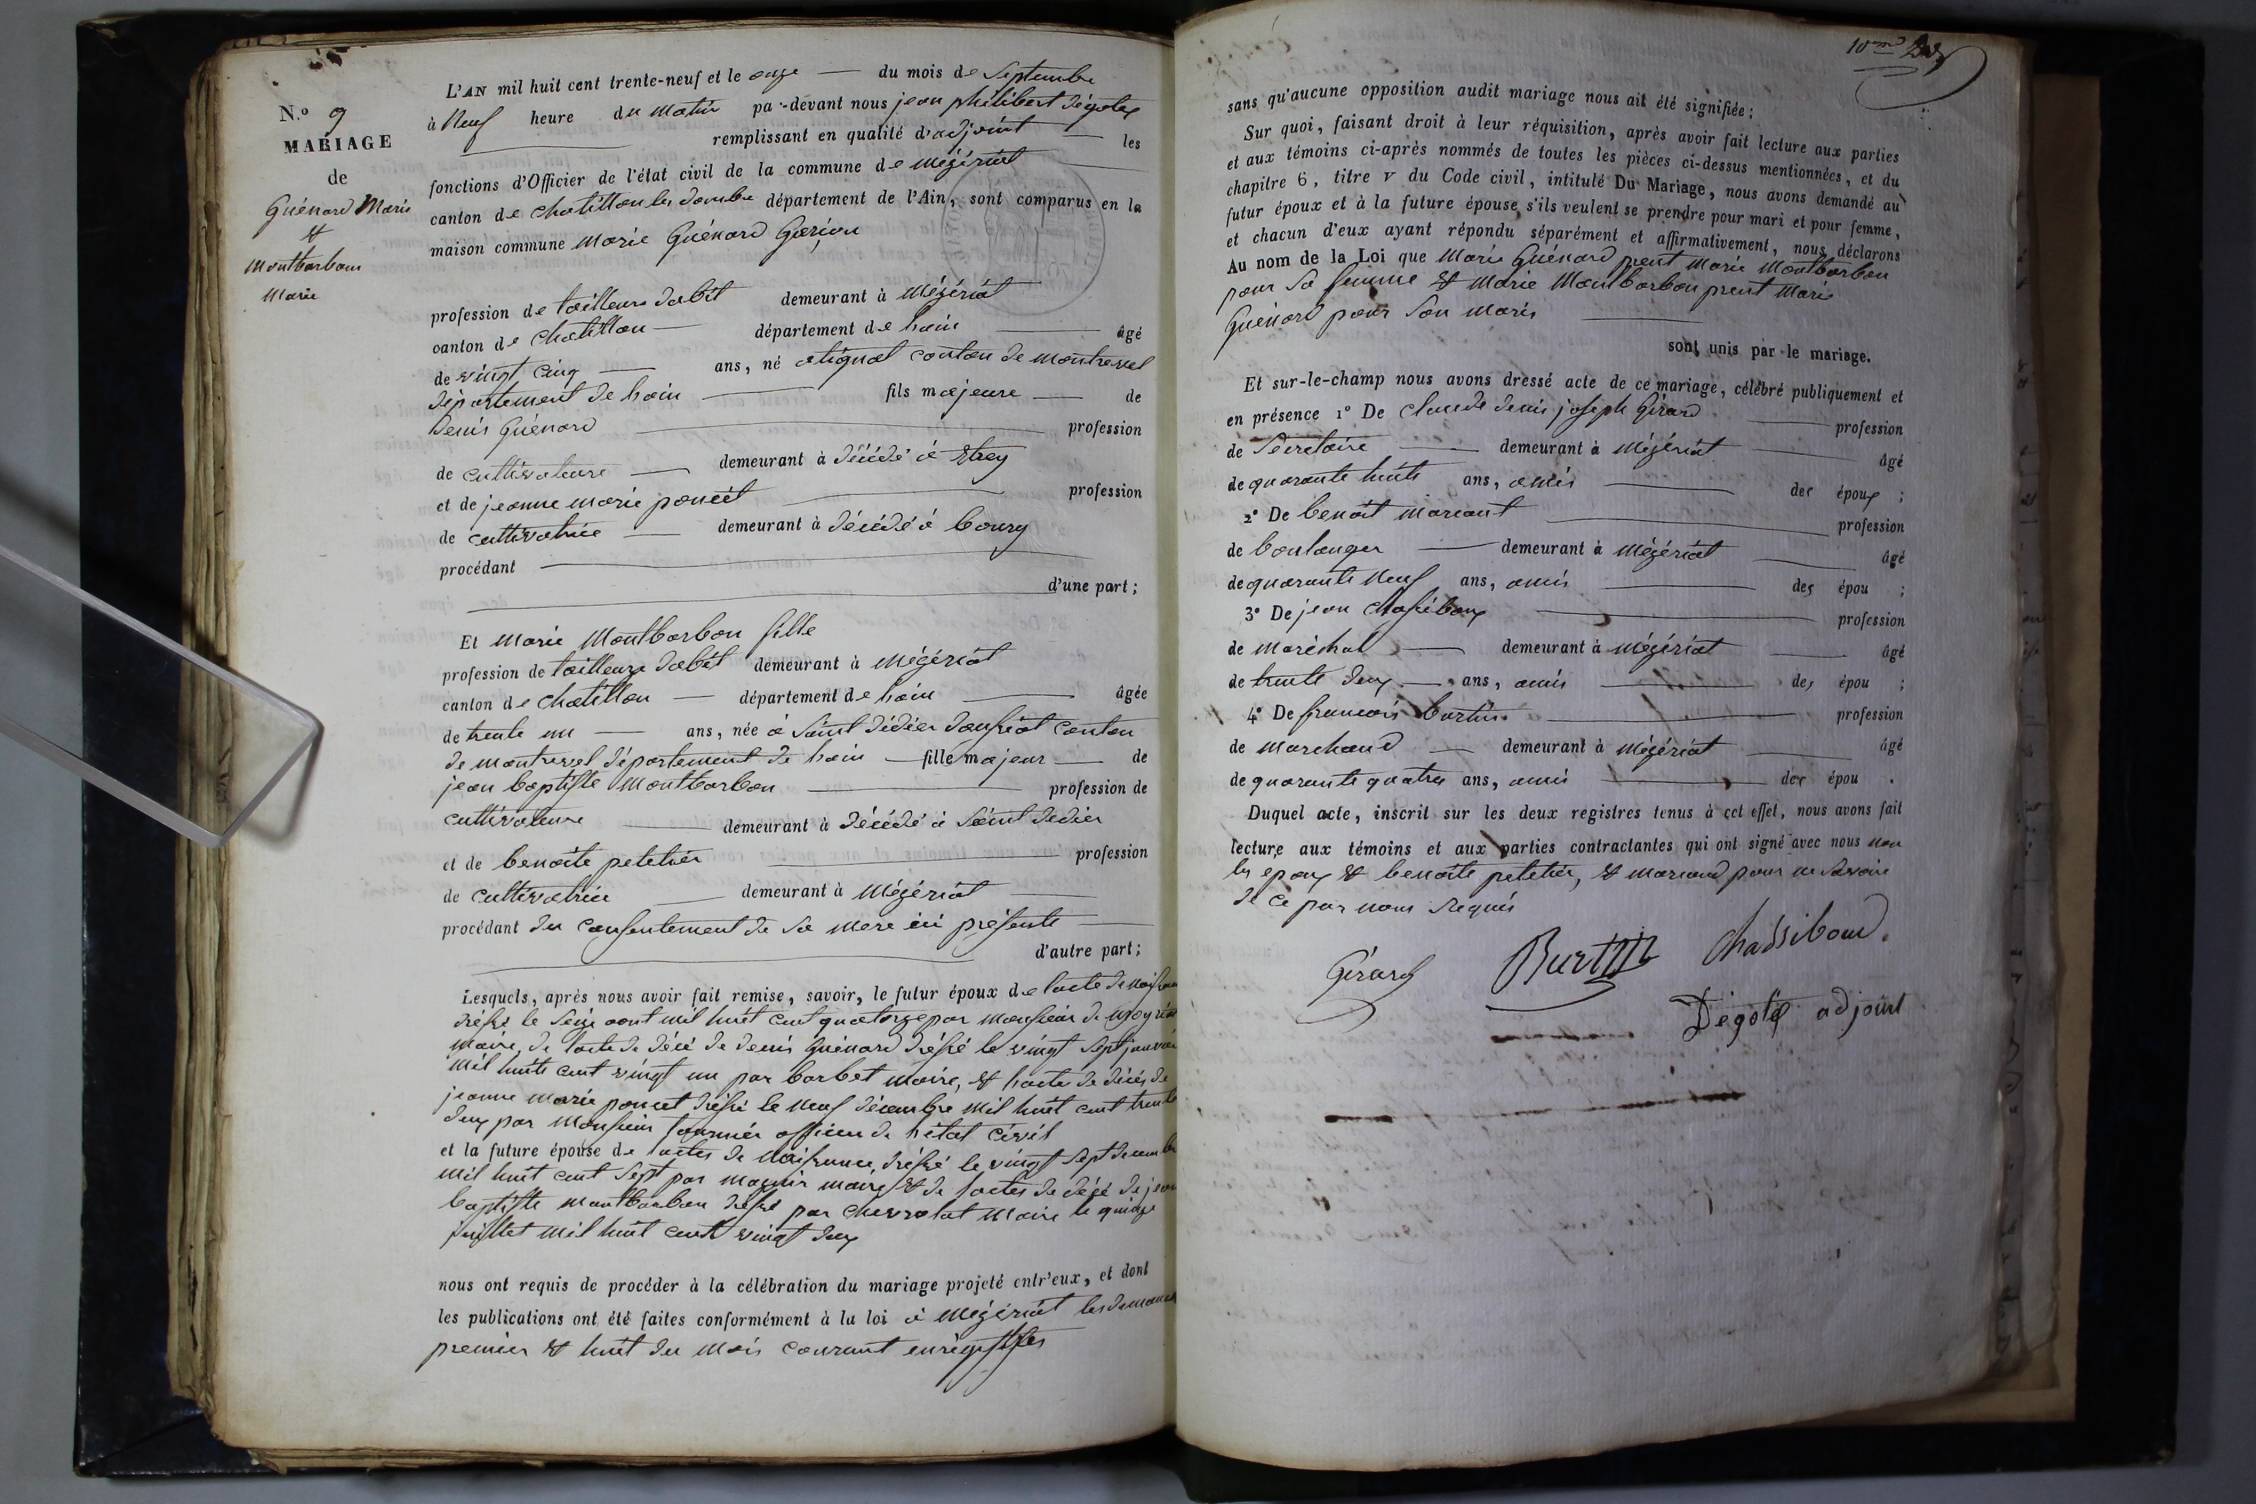 N.o 9
MARIAGE
de
Guénard Marie
et
Montbarbon
Marie
L'AN mil huit cent trente-neuf et le onze du mois de Septembre
à Neuf heure du matin par-devant nous jean philibert Dégoley
remplissant en qualité d'adjoint les
fonctions d'Officier de l'état civil de la commune de Mézériat
canton de chatillon les dombe département de l'Ain, sont comparus en la
maison commune Marie Guénard Garçon
profession de tailleure dabit demeurant à Mézériat
canton de Chatillon département de hain âgé
de vingt cinq ans, né atignat canton de montrevel
département de hain fils majeure de
Denis Guénard profession
de cultivateure demeurant à décédé à Etrey
et de jeanne marie poncet profession
de cultivatrice demeurant à décédé à bourg
procédant
d'une part;
Et Marie Montbarbon fille
profession de tailleuze dabit demeurant à Mézériat
canton de chatillon département de hain âgée
de trente un ans, née à Saint didier daussiat canton
de montrevel département de hain fille majeur de
jean baptiste Montbarbon profession de
cultivateure demeurant à décédé à Saint didier
et de benoite peletier profession
de cultivatrice demeurant à Mézériat
procédant du consentement de sa mere ici présente
d'autre part;
Lesquels, après nous avoir fait remise, savoir, le futur époux de lacte de naissance
dréssé le Seize aout mil huit cent quatorze par monsieur de
maire, de lacte de décé de denis Guénard dréssé le vingt sept janvier
mil huits cent vingt un par barbet maire, et lacte de décés de
jeanne marie poncet dréssé le neuf décembre mil huit cent trente
deux par Monsieur fournier officier de létat civil
et la future épouse de lactes de naissance, dréssé le vingt sept décembre
mil huit cent sept par maire et de lactes de décé de jean
baptiste montbarbon dréssé par chevrolat maire le quinze
juillet mil huit cent vingt deux
nous ont requis de procéder à la célébration du mariage projeté entr'eux, et dont
les publications ont été faites conformément à la loi à Mézériat les dimanches
premier et huit du mois courant enrégistrées
10me
sans qu'aucune opposition audit mariage nous ait été signifiée;
Sur quoi, faisant droit à leur réquisition, après avoir fait lecture aux parties
et aux témoins ci-après nommés de toutes les pièces ci-dessus mentionnées, et du
chapitre 6, titre v du Code civil, intitulé Du Mariage, nous avons demandé au
futur époux et à la future épouse s'ils veulent se prendre pour mari et pour femme,
et chacun d'eux ayant répondu séparément et affirmativement, nous déclarons
Au nom de la Loi que Marie Guénard prent Marie Montbarbon
pour sa femme et Marie Montbarbon prent Marie
Guénard pour son maris
sont unis par le mariage.
Et sur-le-champ nous avons dressé acte de ce mariage, célébré publiquement et
en présence 1o De claude denis joseph Girard profession
de Secretaire demeurant à Mézériat âgé
de quarante huits ans, amis des époux ;
2o De benoit mariant profession
de boulanger demeurant à Mézériat âgé
de quarante neuf ans, amis des épou ;
3o De jean chassiboux profession
de maréchal demeurant à Mézériat âgé
de trente deux ans, amis des épou ;
4o De francois burtin profession
de marchand demeurant à Mézériat âgé
de quarante quatre ans, amis des épou .
Duquel acte, inscrit sur les deux registres tenus à cet effet, nous avons fait
lecture aux témoins et aux parties contractantes qui ont signé avec nous non
les epoux et benoite peletier, et mariand pour ne savoire
de ce par nous réquis
Girard Burtin Chassiboud
Dégoley adjoint